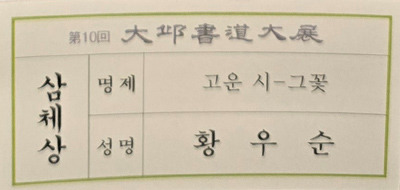 第10回 大邱書道大展
삼체상
명제 고운 시-그꽃
성명 황우순